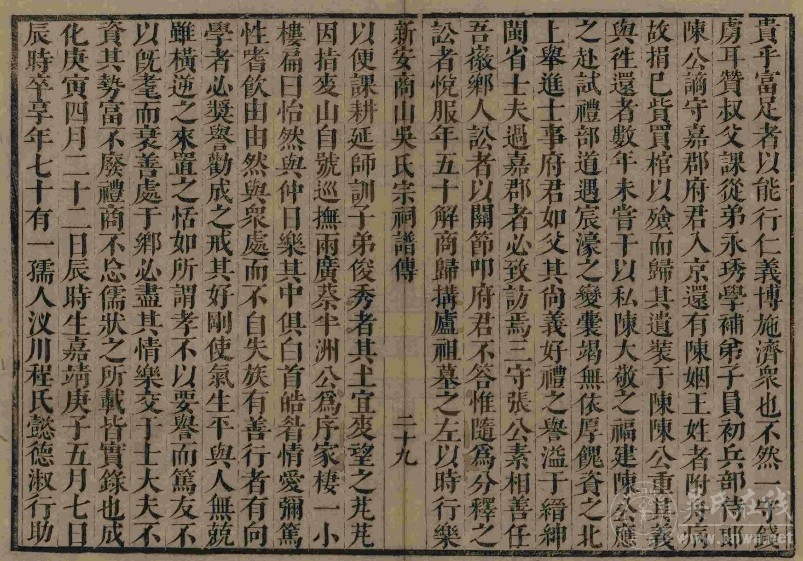 貴乎富足者以能行仁義博施濟衆也不然一守錢
虜耳贊叔父課從弟永琇學補弟子員初兵部侍郎
陳公謫守嘉郡府君入京還有陳姻王姓者附舟病
故捐已貲買棺以殮而歸其遺裝于陳陳公重其義
與徃還者數年未嘗干以私陳大敬之福建陳久應
之赴試禮部道遇宸濠之變囊竭無依厚餽資之北
上舉進士事府君如父其尚義好禮之譽溢于縉紳
閩省士夫過嘉郡者必致訪焉三守張公素相善任
吾徽鄉人訟者以關節叩府君不答惟隨爲分釋之
訟者悅服年五十解商歸搆廬祖墓之左以時行樂
新安商山吳氏宗祠譜傳
二十九
以便課耕延師訓子弟俊秀者其土宜麥望之芃芃
因指麥山自號巡撫兩廣蔡半洲公爲序家棲一小
樓扁曰怡然與仲日樂其中俱白首皓眉情愛彌篤
性嗜飲由由然與衆處而不自失族有善行者有向
學者必奬譽勸成之戒其好剛使氣生平與人無競
雖橫逆之來置之恬如所謂孝不以要譽而篤友不
以旣耄而衰善處于鄉必盡其情樂交于士大夫不
資其勢富不廢禮商不忘儒狀之所載皆實錄也成
化庚寅四月二十二日辰時生嘉靖庚子五月七日
辰時卒享年七十有一孺人汊川程氏懿德淑行助
吳氏在线
www.cnwu.net